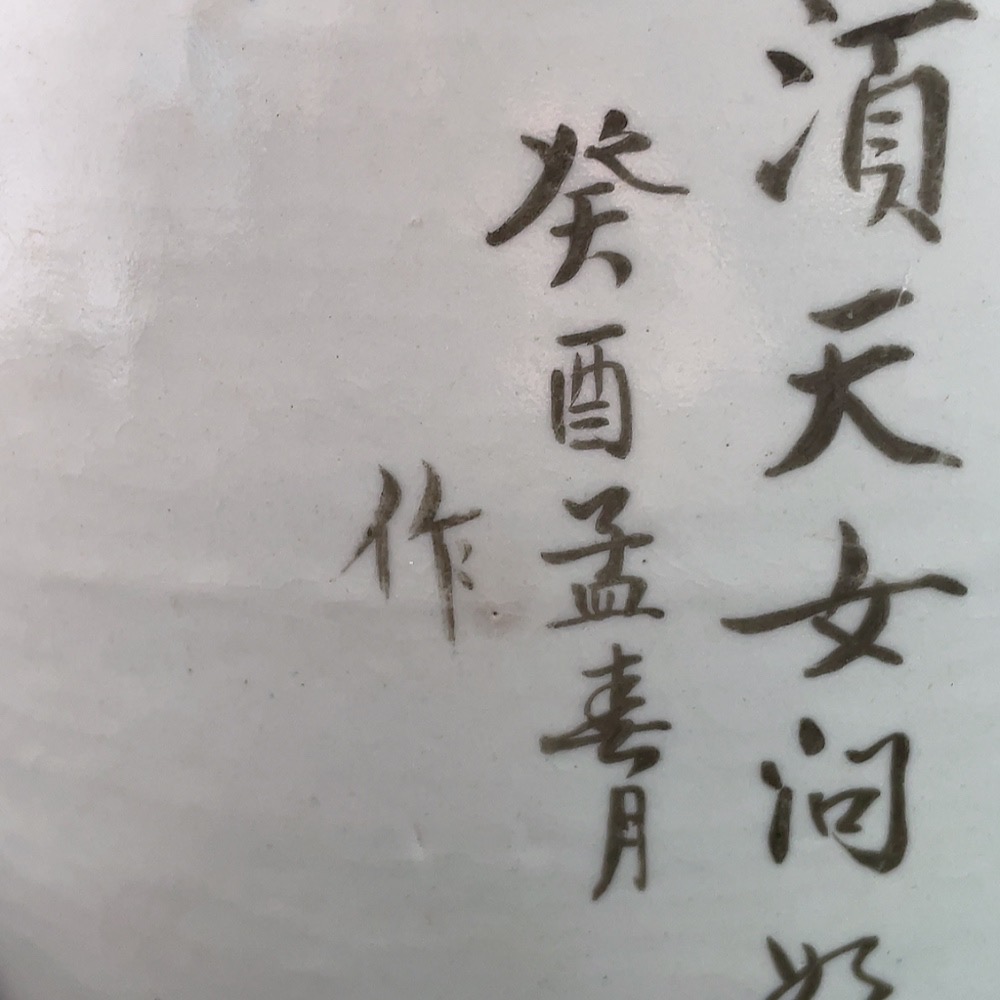 湏天女问
癸酉孟春月
作